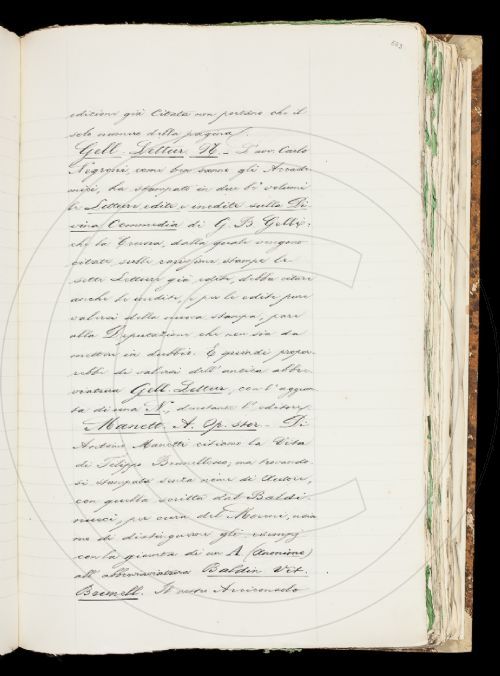 623
edizioni già citata non portano che il
solo numero della pagina.
Gell. Lettur. N. – L'avv. Carlo
Negroni, come ben sanno gli Accade-
mici, ha stampato in due bei volumi
le Letture edite e inedite sulla Di-
vina Commedia di G. B. Gelli;
che la Crusca, dalla quale vengono
citate sulle rarissime stampe le
sette Letture già edite, debba citare
anche le inedite, e per le edite pure
valersi della nuova stampa, pare
alla Deputazione che non sia da
mettere in dubbio. E quindi propor-
rebbe di valersi dell'antica abbre-
viatura Gell. Lettur., con l'aggiun-
ta di una N., denotante l'editore.
Manett. A. Op. stor. – Di
Antonio Manetti citiamo la Vita
di Filippo Brunellesco; ma trovando-
si stampata senza nome di Autore,
con quella scritta dal Baldi-
nucci, per cura del Moreni, venia-
mo di distinguere gli esempj
con la giunta di un A (Anonimo)
all'abbreviatura Baldin. Vit.
Brunell. Il nostro Arciconsolo